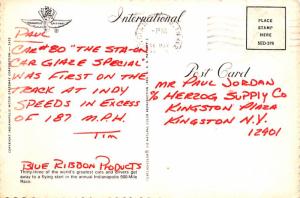 International
Post Card
PLACE
STAMP
HERE
SED-379
PAUL
CAR #80 "THE STA-ON
CAR GLAZE SPECIAL"
WAS FIRST ON THE
TRACK AT INDY
SPEEDS IN EXCESS
OF 187 M.P.H.
TIM
BLUE RIBBON PRODUCTS
Thirty-three of the world's greatest cars and drivers get
away to a flying start in the annual Indianapolis 500-Mile
Race.
MR PAUL JORDAN
% HERZOG SUPPLY CO
KINGSTON PLAZA
KINGSTON N.Y.
12401